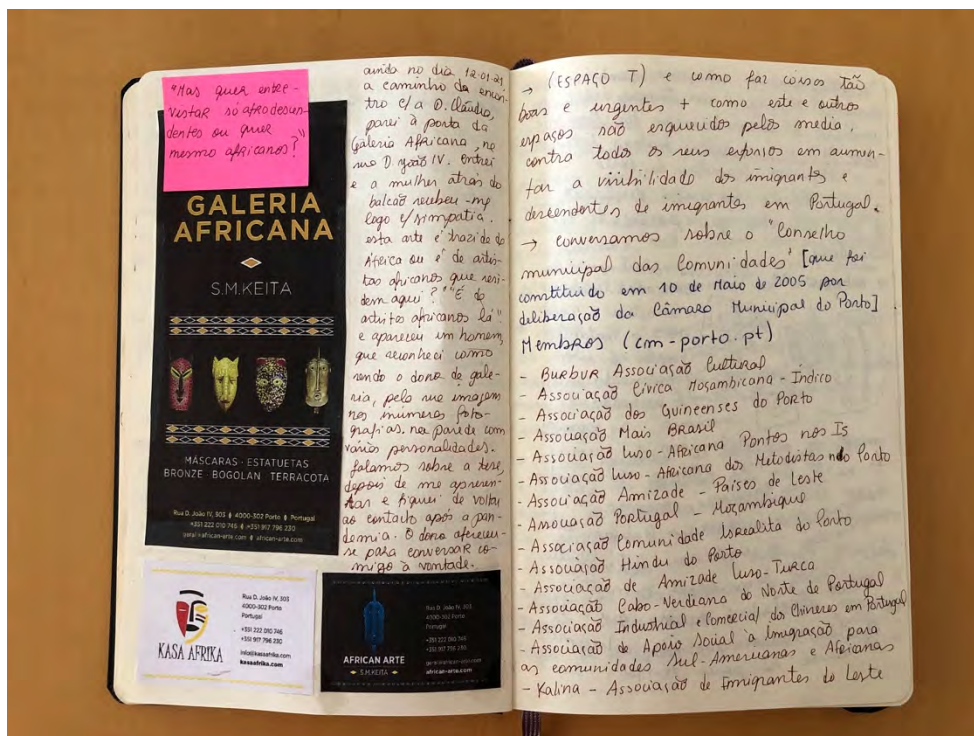 "Mas quer entre-
vistar só afrodescen-
dentes ou quer
mesmo africanos?"
GALERIA
AFRICANA
S.M.KEITA
MÁSCARAS · ESTATUETAS
BRONZE · BOGOLAN · TERRACOTA
Rua D. João IV, 303 4000-302 Porto Portugal
+351 222 010 746 +351 917 796 230
geral@african-arte.com african-arte.com
KASA AFRIKA
Rua D. João IV, 303
4000-302 Porto
Portugal
+351 222 010 746
+351 917 796 230
info@kasaafrika.com
kasaafrika.com
AFRICAN ARTE
S.M.KEITA
Rua D. João IV, 303
4000-302 Porto
Portugal
+351 222 010 746
+351 917 796 230
geral@african-arte.com
african-arte.com
ainda no dia 12-01-21
a caminho da encon-
tro c/ a D. Cláudia,
parei à porta da
Galeria Africana, na
rua D. João IV. entrei
e a mulher atrás do
balcão recebeu-me
logo c/ simpatia.
esta arte é trazida de
África ou é de artis-
tas africanos que resi-
dem aqui?" "É de
artistas africanos lá"
e apareceu um homem,
que reconheci como
sendo o dono da gale-
ria, pela sua imagem
nas inúmeras foto-
grafias, na parede com
várias personalidades.
falamos sobre a tese,
depois de me apresen-
tar e fiquei de voltar
ao contacto após a pan-
demia. O dono ofereceu-
se para conversar co-
migo à vontade.
→ (ESPAÇO T) e como faz coisas tão
boas e urgentes + como este e outros
espaços são esquecidos pelos media,
contra todos os seus esforços em aumen-
tar a visibilidade dos imigrantes e
descendentes de imigrantes em Portugal.
→ conversamos sobre o "Conselho
municipal das Comunidades" [que foi
constituido em 10 de Maio de 2005 por
deliberação da Câmara Municipal do Porto]
Membros (cm-porto.pt)
- Burbur Associação Cultural
- Associação Cívica Moçambicana - Índico
- Associação dos Guineenses do Porto
- Associação Mais Brasil
- Associação Luso-Africana Pontos nos Is
- Associação Luso-Africana dos Metodistas no Porto
- Associação Amizade - Países de Leste
- Associação Portugal - Moçambique
- Associação Comunidade Israelita do Porto
- Associação Hindu do Porto
- Associação de Amizade Luso-Turca
- Associação Cabo-Verdiana do Norte de Portugal
- Associação Industrial e Comercial dos Chineses em Portugal
- Associação de Apoio Social à Imigração para
as comunidades Sul-Americanas e Africanas
- Kalina - Associação de Imigrantes de Leste